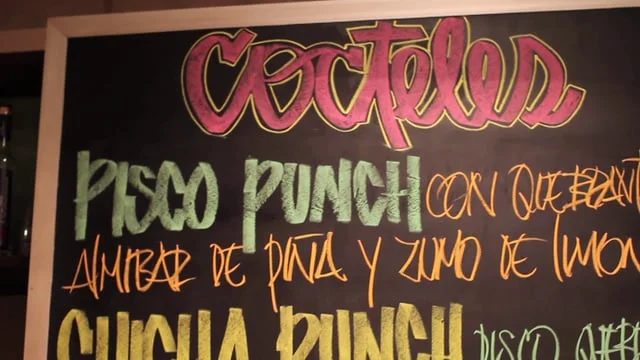 Cocteles
PISCO PUNCH CON QUEBRANT
ALMIBAR DE PIÑA Y ZUMO DE LIMON
CHICHA PUNCH PISCO QUEBR